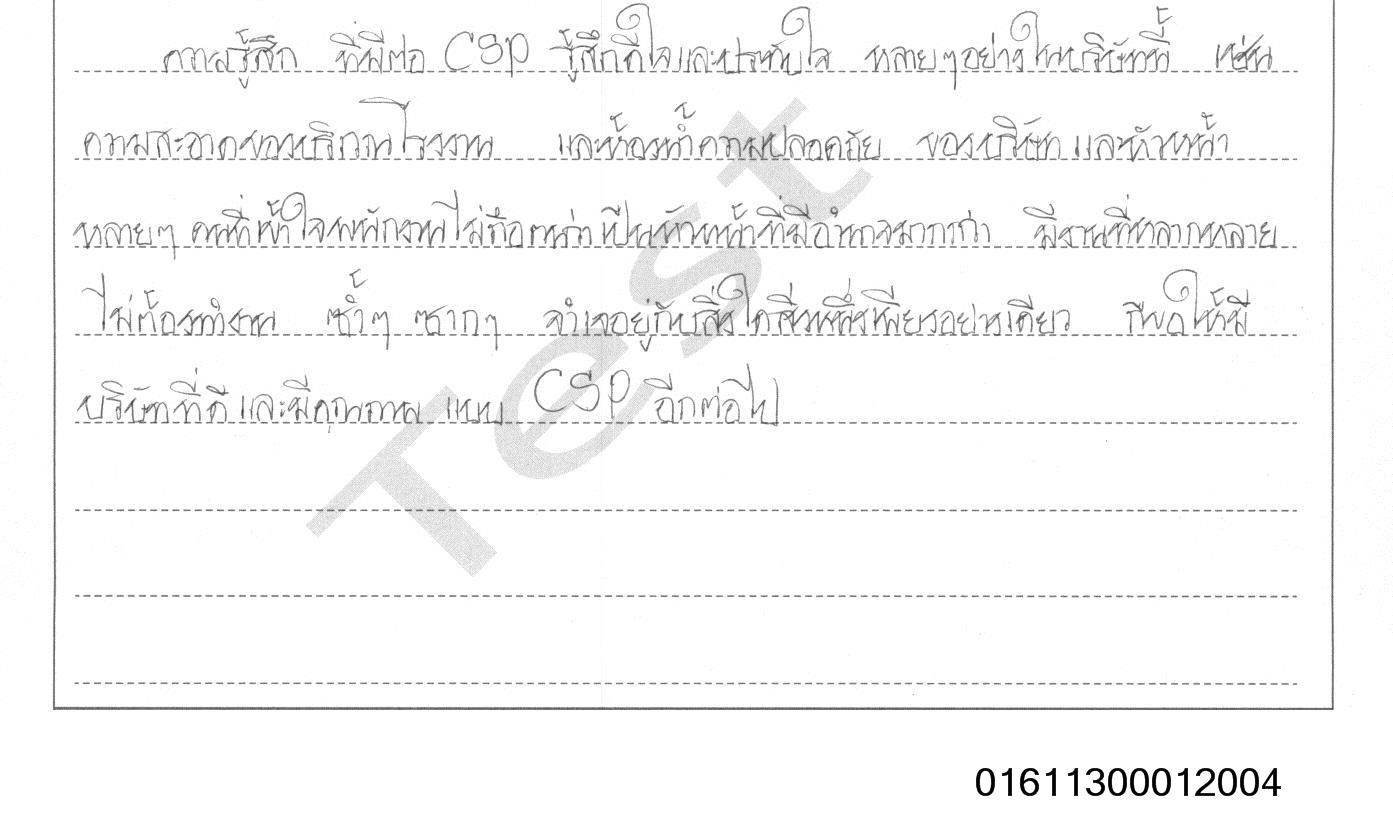 ความรู้สึก ที่มีต่อ CSP รู้สึกดีใจและประทับใจ หลายๆอย่างในบริษัทนี้ เช่น
ความสะอาดของบริเวณโรงงาน และห้องน้ำความปลอดภัย ของบริษัท และหัวหน้า
หลายๆ คนที่เข้าใจพนักงานไม่ถือตนว่าเป็นหัวหน้าที่มีอำนาจมากกว่า มีงานที่หลากหลาย
ไม่ต้องทำงาน ซ้ำๆ ซากๆ จำเจอยู่กับสิ่งใดสิ่งหนึ่งเพียงอย่างเดียว ให้มี
บริษัทที่ดี และมีคุณภาพ แบบ CSP อีกต่อไป
Test
01611300012004